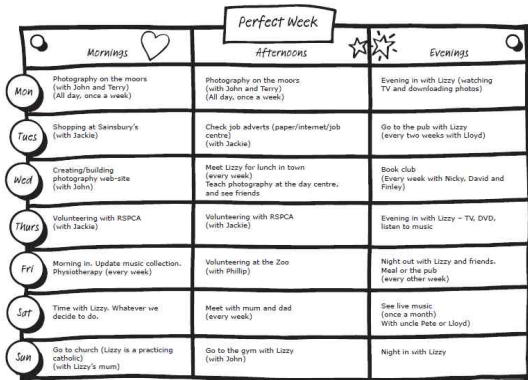 Perfect Week
Mornings
Afternoons
Evenings
Mon
Photography on the moors
(with John and Terry)
(All day, once a week)
Photography on the moors
(with John and Terry)
(All day, once a week)
Evening in with Lizzy (watching
TV and downloading photos)
Tues
Shopping at Sainsbury's
(with Jackie)
Check job adverts (paper/internet/job
centre)
(with Jackie)
Go to the pub with Lizzy
(every two weeks with Lloyd)
Wed
Creating/building
photography web-site
(with John)
Meet Lizzy for lunch in town
(every week)
Teach photography at the day centre,
and see friends
Book club
(Every week with Nicky, David and
Finley)
Thurs
Volunteering with RSPCA
(with Jackie)
Volunteering with RSPCA
(with Jackie)
Evening in with Lizzy – TV, DVD,
listen to music
Fri
Morning in. Update music collection.
Physiotherapy (every week)
Volunteering at the Zoo
(with Phillip)
Night out with Lizzy and friends.
Meal or the pub
(every other week)
Sat
Time with Lizzy. Whatever we
decide to do.
Meet with mum and dad
(every week)
See live music
(once a month)
With uncle Pete or Lloyd)
Sun
Go to church (Lizzy is a practicing
catholic)
(with Lizzy's mum)
Go to the gym with Lizzy
(with John)
Night in with Lizzy